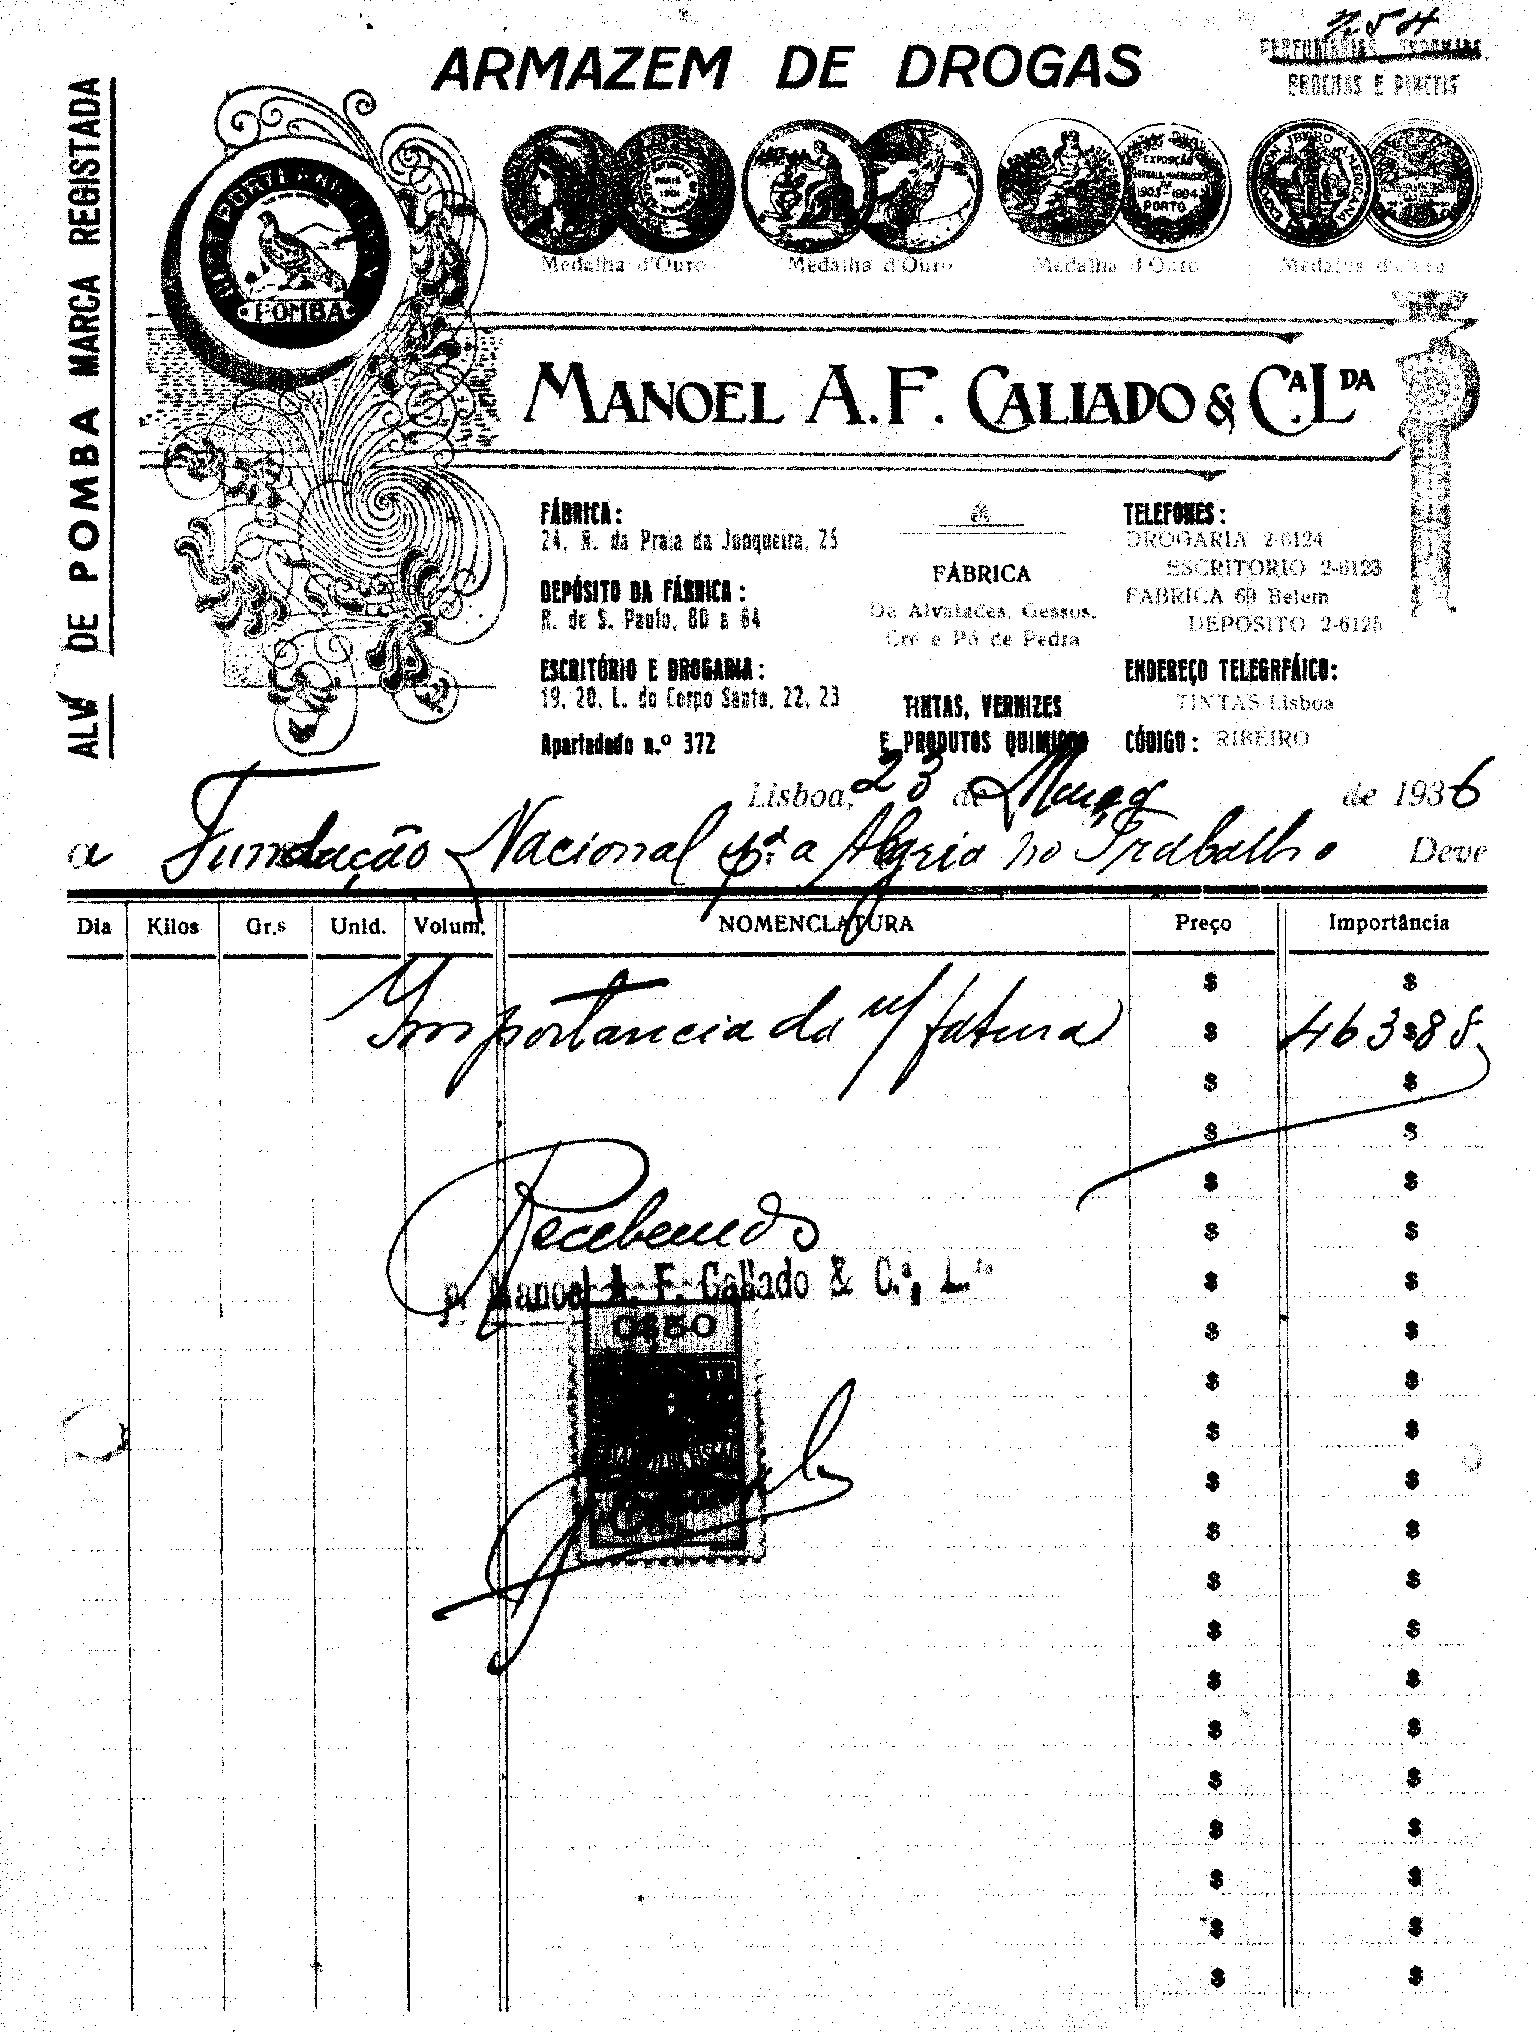 254
ARMAZEM DE DROGAS
PERFUMARIAS, ESPONJAS
BROCHAS E PINCEIS
ALV DE POMBA MARCA REGISTADA
POMBA
EXPOSIÇÃO
1903-1904
PORTO
Medalha d'Ouro
Medalha d'Ouro
Medalha d'Ouro
Medalha d'Ouro
MANOEL A. F. CALLADO & C.A L.DA
FÁBRICA:
24, R. da Praia da Junqueira, 25
DEPÓSITO DA FÁBRICA:
R. de S. Paulo, 80 a 84
ESCRITÓRIO E DROGARIA:
19, 20, L. do Corpo Santo, 22, 23
Apartadado n.º 372
FÁBRICA
De Alvaiades, Gessos,
Cré e Pó de Pedra
TINTAS, VERNIZES
E PRODUTOS QUIMICOS
TELEFONES:
DROGARIA 2-6124
ESCRITORIO 2-6123
FABRICA 69 Belem
DEPOSITO 2-6125
ENDEREÇO TELEGRFÁICO:
TINTAS-Lisboa
CÓDIGO: RIBEIRO
Lisboa, 23 de Março de 1936
a Fundação Nacional pª a Alegria no Trabalho Deve
Dia Kilos Gr.s Unid. Volum. NOMENCLATURA Preço Importância
Importancia da n/ fatura 463$85
Recebemos
p. Manoel A. F. Callado & C.ª, L.da
0$50